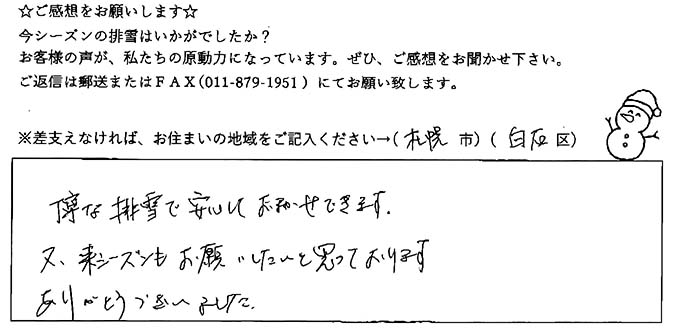 ☆ご感想をお願いします☆
今シーズンの排雪はいかがでしたか?
お客様の声が、私たちの原動力になっています。ぜひ、ご感想をお聞かせ下さい。
ご返信は郵送またはFAX(011-879-1951)にてお願い致します。
※差支えなければ、お住まいの地域をご記入ください→(札幌 市)(白石 区)
丁寧な排雪で安心しておまかせできます。
又、来シーズンもお願いしたいと思っております
ありがとうございました。